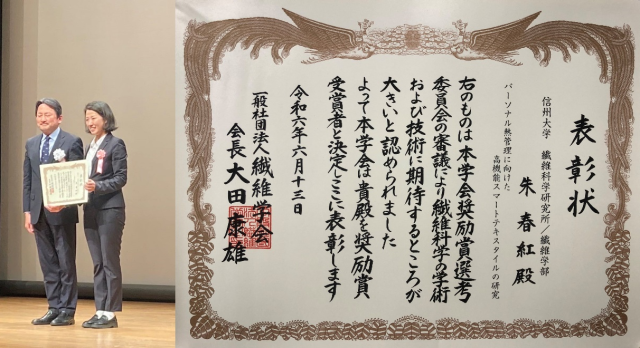 表彰状
信州大学　繊維科学研究所／繊維学部
朱　春紅殿
パーソナル熱管理に向けた
高機能スマートテキスタイルの研究
右のものは本学会奨励賞選考
委員会の審議により繊維科学の学術
および技術に期待するところが
大きいと認められました
よって本学会は貴殿を奨励賞
受賞者と決定しここに表彰します
令和六年六月十三日
一般社団法人繊維学会
会長　太田康雄